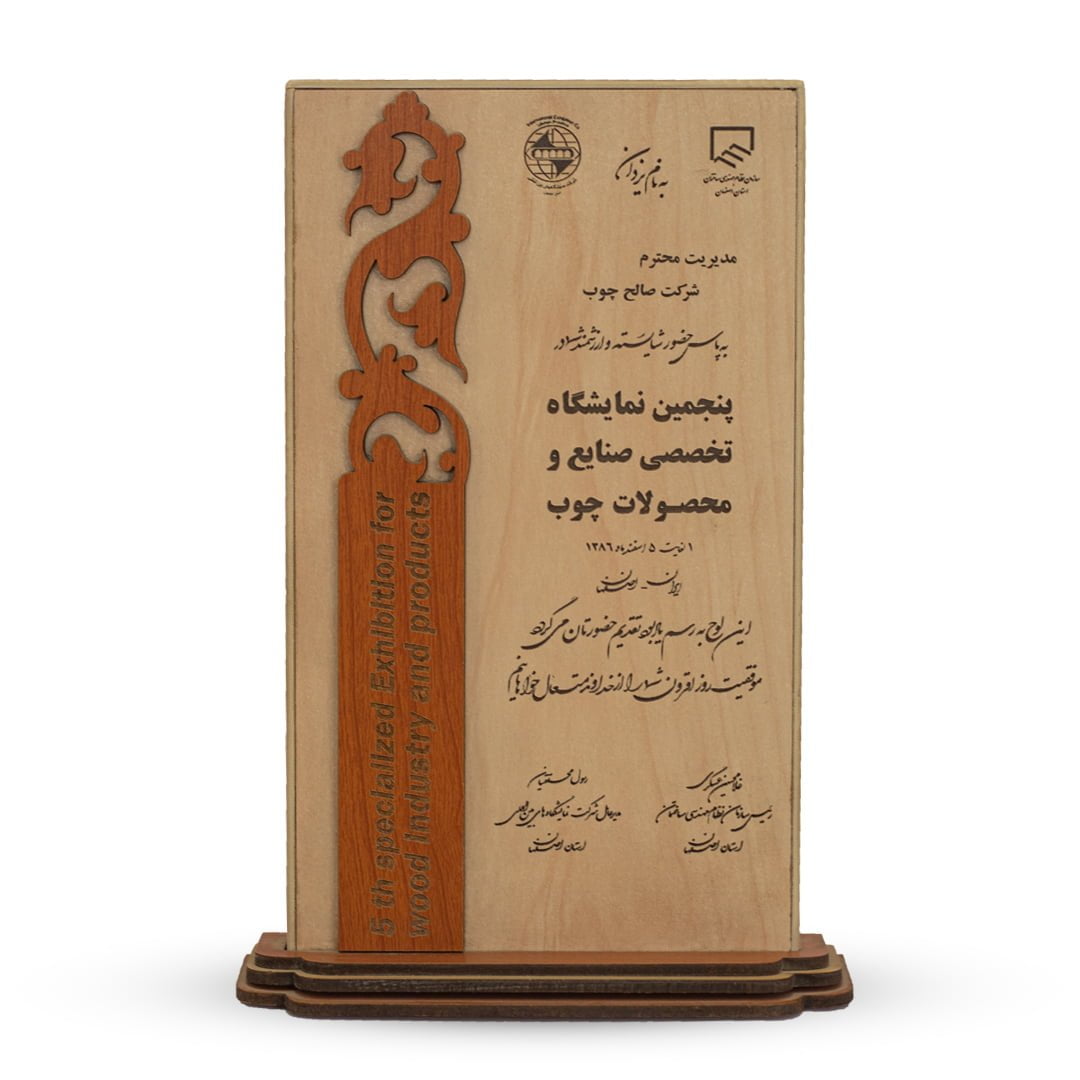 به نام یزدان
International Exhibition Co
سازمان نظام مهندسی ساختمان
استان اصفهان
مدیریت محترم
شرکت صالح چوب
به پاس حضور شایسته و ارزشمند شما در
پنجمین نمایشگاه
تخصصی صنایع و
محصولات چوب
۱ لغایت ۵ اسفند ماه ۱۳۸۶
ایران - اصفهان
این لوح به رسم یادبود تقدیم حضورتان می گردد
موفقیت روز افزون شما را از خداوند متعال خواهانیم
غلامحسین عسگری
رئیس سازمان نظام مهندسی ساختمان
استان اصفهان
رسول محققیان
مدیرعامل شرکت نمایشگاه های بین المللی
استان اصفهان
5 th specialized Exhibition for
wood industry and products